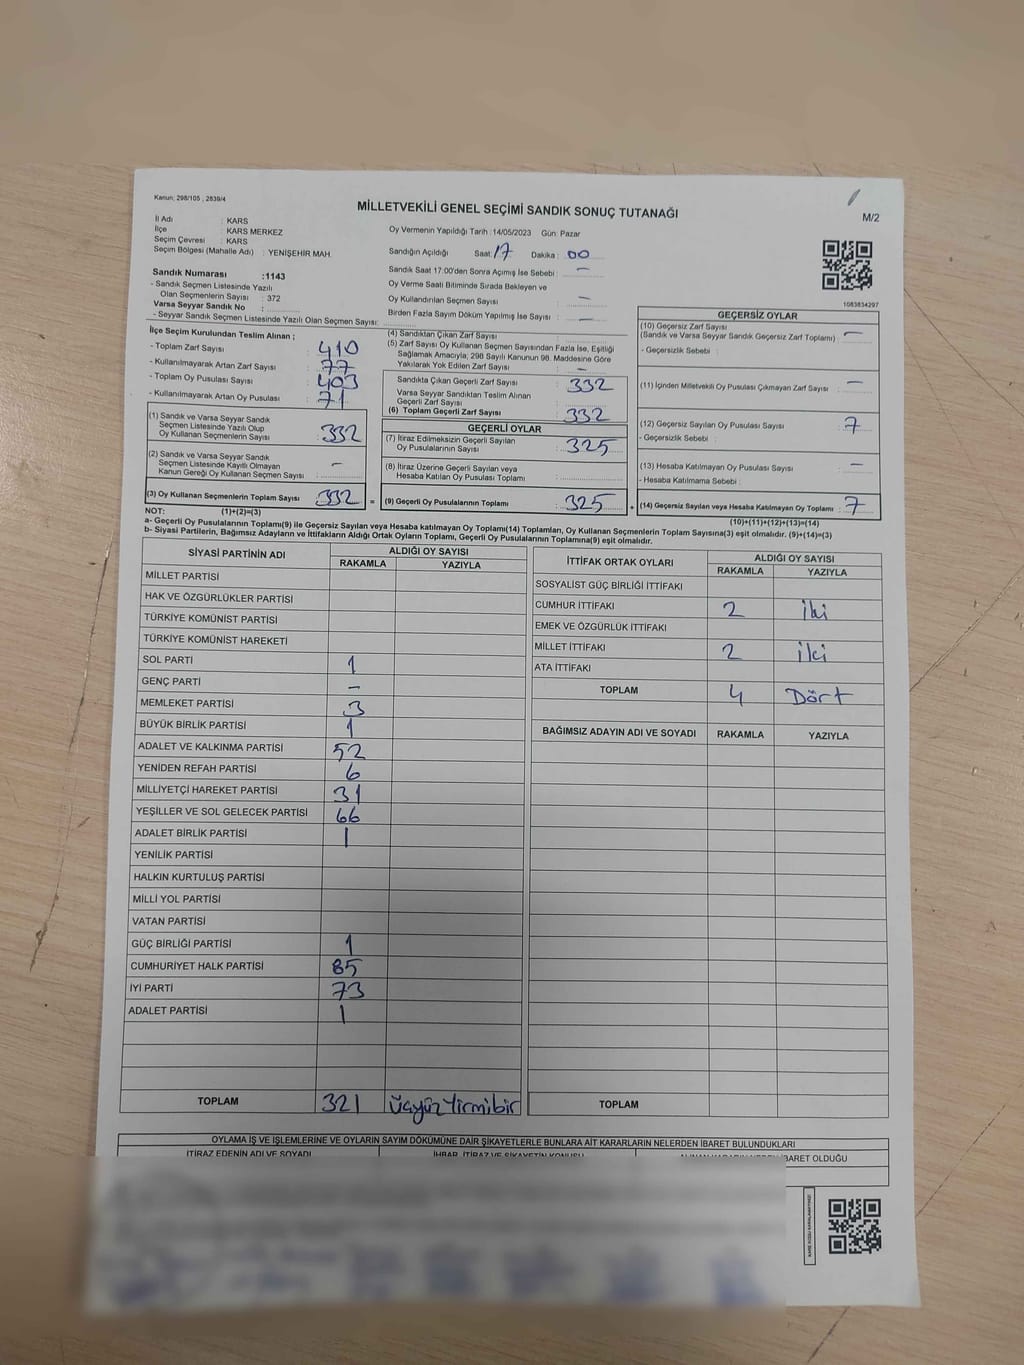 Kanun; 298/105 , 2839/4
MİLLETVEKİLİ GENEL SEÇİMİ SANDIK SONUÇ TUTANAĞI
M/2
İl Adı : KARS
İlçe : KARS MERKEZ
Seçim Çevresi : KARS
Seçim Bölgesi (Mahalle Adı) : YENİŞEHİR MAH.
Oy Vermenin Yapıldığı Tarih :14/05/2023 Gün: Pazar
Sandığın Açıldığı Saat: 17 Dakika : 00
Sandık Saat 17:00'den Sonra Açılmış İse Sebebi : -
Oy Verme Saati Bitiminde Sırada Bekleyen ve
Oy Kullandırılan Seçmen Sayısı : -
Birden Fazla Sayım Döküm Yapılmış İse Sayısı : -
1083834297
Sandık Numarası :1143
- Sandık Seçmen Listesinde Yazılı
Olan Seçmenlerin Sayısı : 372
Varsa Seyyar Sandık No :
- Seyyar Sandık Seçmen Listesinde Yazılı Olan Seçmen Sayısı:
İlçe Seçim Kurulundan Teslim Alınan ;
- Toplam Zarf Sayısı : 410
- Kullanılmayarak Artan Zarf Sayısı : 77
- Toplam Oy Pusulası Sayısı : 403
- Kullanılmayarak Artan Oy Pusulası : 71
(1) Sandık ve Varsa Seyyar Sandık
Seçmen Listesinde Yazılı Olup
Oy Kullanan Seçmenlerin Sayısı : 332
(2) Sandık ve Varsa Seyyar Sandık
Seçmen Listesinde Kayıtlı Olmayan
Kanun Gereği Oy Kullanan Seçmen Sayısı : -
(3) Oy Kullanan Seçmenlerin Toplam Sayısı : 332 =
(4) Sandıktan Çıkan Zarf Sayısı :
(5) Zarf Sayısı Oy Kullanan Seçmen Sayısından Fazla İse, Eşitliği
Sağlamak Amacıyla; 298 Sayılı Kanunun 98. Maddesine Göre
Yakılarak Yok Edilen Zarf Sayısı : -
Sandıkta Çıkan Geçerli Zarf Sayısı : 332
Varsa Seyyar Sandıktan Teslim Alınan
Geçerli Zarf Sayısı :
(6) Toplam Geçerli Zarf Sayısı : 332
GEÇERLİ OYLAR
(7) İtiraz Edilmeksizin Geçerli Sayılan
Oy Pusulalarının Sayısı : 325
(8) İtiraz Üzerine Geçerli Sayılan veya
Hesaba Katılan Oy Pusulası Toplamı :
(9) Geçerli Oy Pusulalarının Toplamı : 325 +
GEÇERSİZ OYLAR
(10) Geçersiz Zarf Sayısı
(Sandık ve Varsa Seyyar Sandık Geçersiz Zarf Toplamı) : -
- Geçersizlik Sebebi :
(11) İçinden Milletvekili Oy Pusulası Çıkmayan Zarf Sayısı : -
(12) Geçersiz Sayılan Oy Pusulası Sayısı : 7
- Geçersizlik Sebebi :
(13) Hesaba Katılmayan Oy Pusulası Sayısı : -
- Hesaba Katılmama Sebebi :
(14) Geçersiz Sayılan veya Hesaba Katılmayan Oy Toplamı : 7
NOT: (1)+(2)=(3)
(10)+(11)+(12)+(13)=(14)
a- Geçerli Oy Pusulalarının Toplamı(9) ile Geçersiz Sayılan veya Hesaba katılmayan Oy Toplamı(14) Toplamları, Oy Kullanan Seçmenlerin Toplam Sayısına(3) eşit olmalıdır. (9)+(14)=(3)
b- Siyasi Partilerin, Bağımsız Adayların ve İttifakların Aldığı Ortak Oyların Toplamı, Geçerli Oy Pusulalarının Toplamına(9) eşit olmalıdır.
SİYASİ PARTİNİN ADI ALDIĞI OY SAYISI
RAKAMLA YAZIYLA
MİLLET PARTİSİ
HAK VE ÖZGÜRLÜKLER PARTİSİ
TÜRKİYE KOMÜNİST PARTİSİ
TÜRKİYE KOMÜNİST HAREKETİ
SOL PARTİ 1
GENÇ PARTİ -
MEMLEKET PARTİSİ 3
BÜYÜK BİRLİK PARTİSİ 1
ADALET VE KALKINMA PARTİSİ 52
YENİDEN REFAH PARTİSİ 6
MİLLİYETÇİ HAREKET PARTİSİ 31
YEŞİLLER VE SOL GELECEK PARTİSİ 66
ADALET BİRLİK PARTİSİ 1
YENİLİK PARTİSİ
HALKIN KURTULUŞ PARTİSİ
MİLLİ YOL PARTİSİ
VATAN PARTİSİ
GÜÇ BİRLİĞİ PARTİSİ 1
CUMHURİYET HALK PARTİSİ 85
İYİ PARTİ 73
ADALET PARTİSİ 1
TOPLAM 321 üçyüzyirmibir
İTTİFAK ORTAK OYLARI ALDIĞI OY SAYISI
RAKAMLA YAZIYLA
SOSYALİST GÜÇ BİRLİĞİ İTTİFAKI
CUMHUR İTTİFAKI 2 iki
EMEK VE ÖZGÜRLÜK İTTİFAKI
MİLLET İTTİFAKI 2 iki
ATA İTTİFAKI
TOPLAM 4 Dört
BAĞIMSIZ ADAYIN ADI VE SOYADI RAKAMLA YAZIYLA
TOPLAM
OYLAMA İŞ VE İŞLEMLERİNE VE OYLARIN SAYIM DÖKÜMÜNE DAİR ŞİKAYETLERLE BUNLARA AİT KARARLARIN NELERDEN İBARET BULUNDUKLARI
İTİRAZ EDENİN ADI VE SOYADI İHBAR, İTİRAZ VE ŞİKAYETİN KONUSU İBARET OLDUĞU